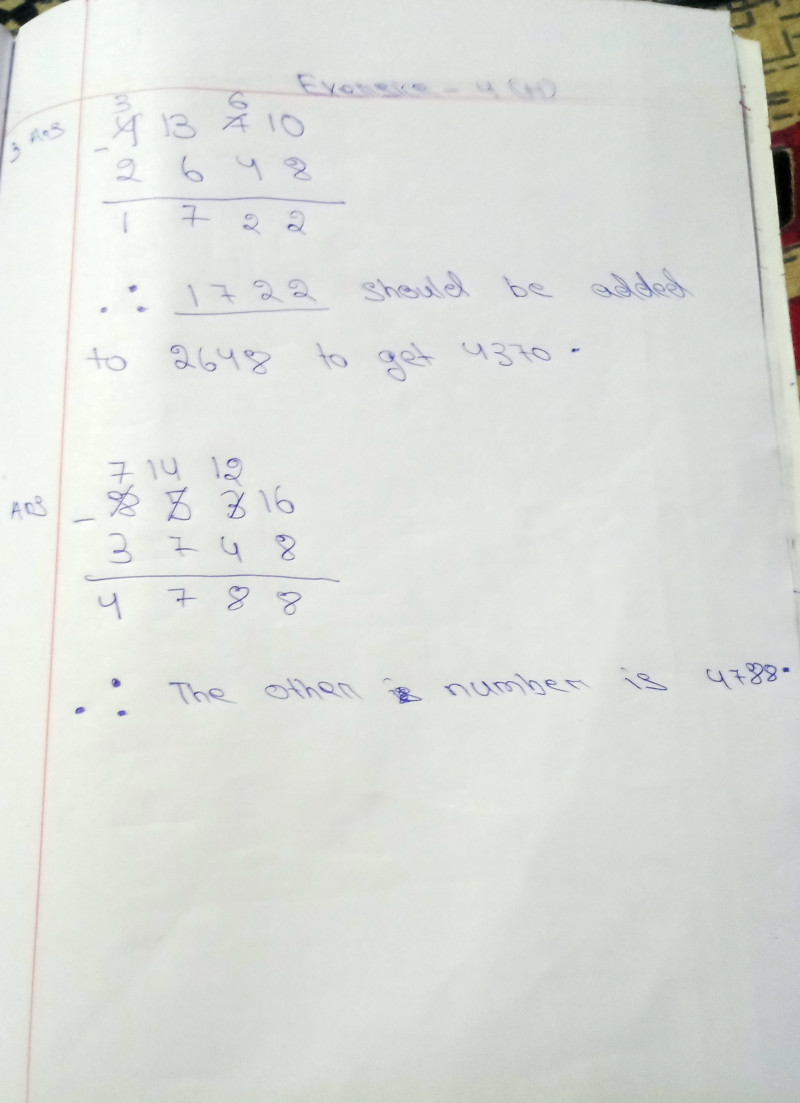 Exercise - 4 (H)
3 6
3 Ans 4 13 7 10
- 2 6 4 8
1 7 2 2
∴ 1722 should be added
to 2648 to get 4370.
7 14 12
Ans - 8 5 3 16
3 7 4 8
4 7 8 8
∴ The other number is 4788.